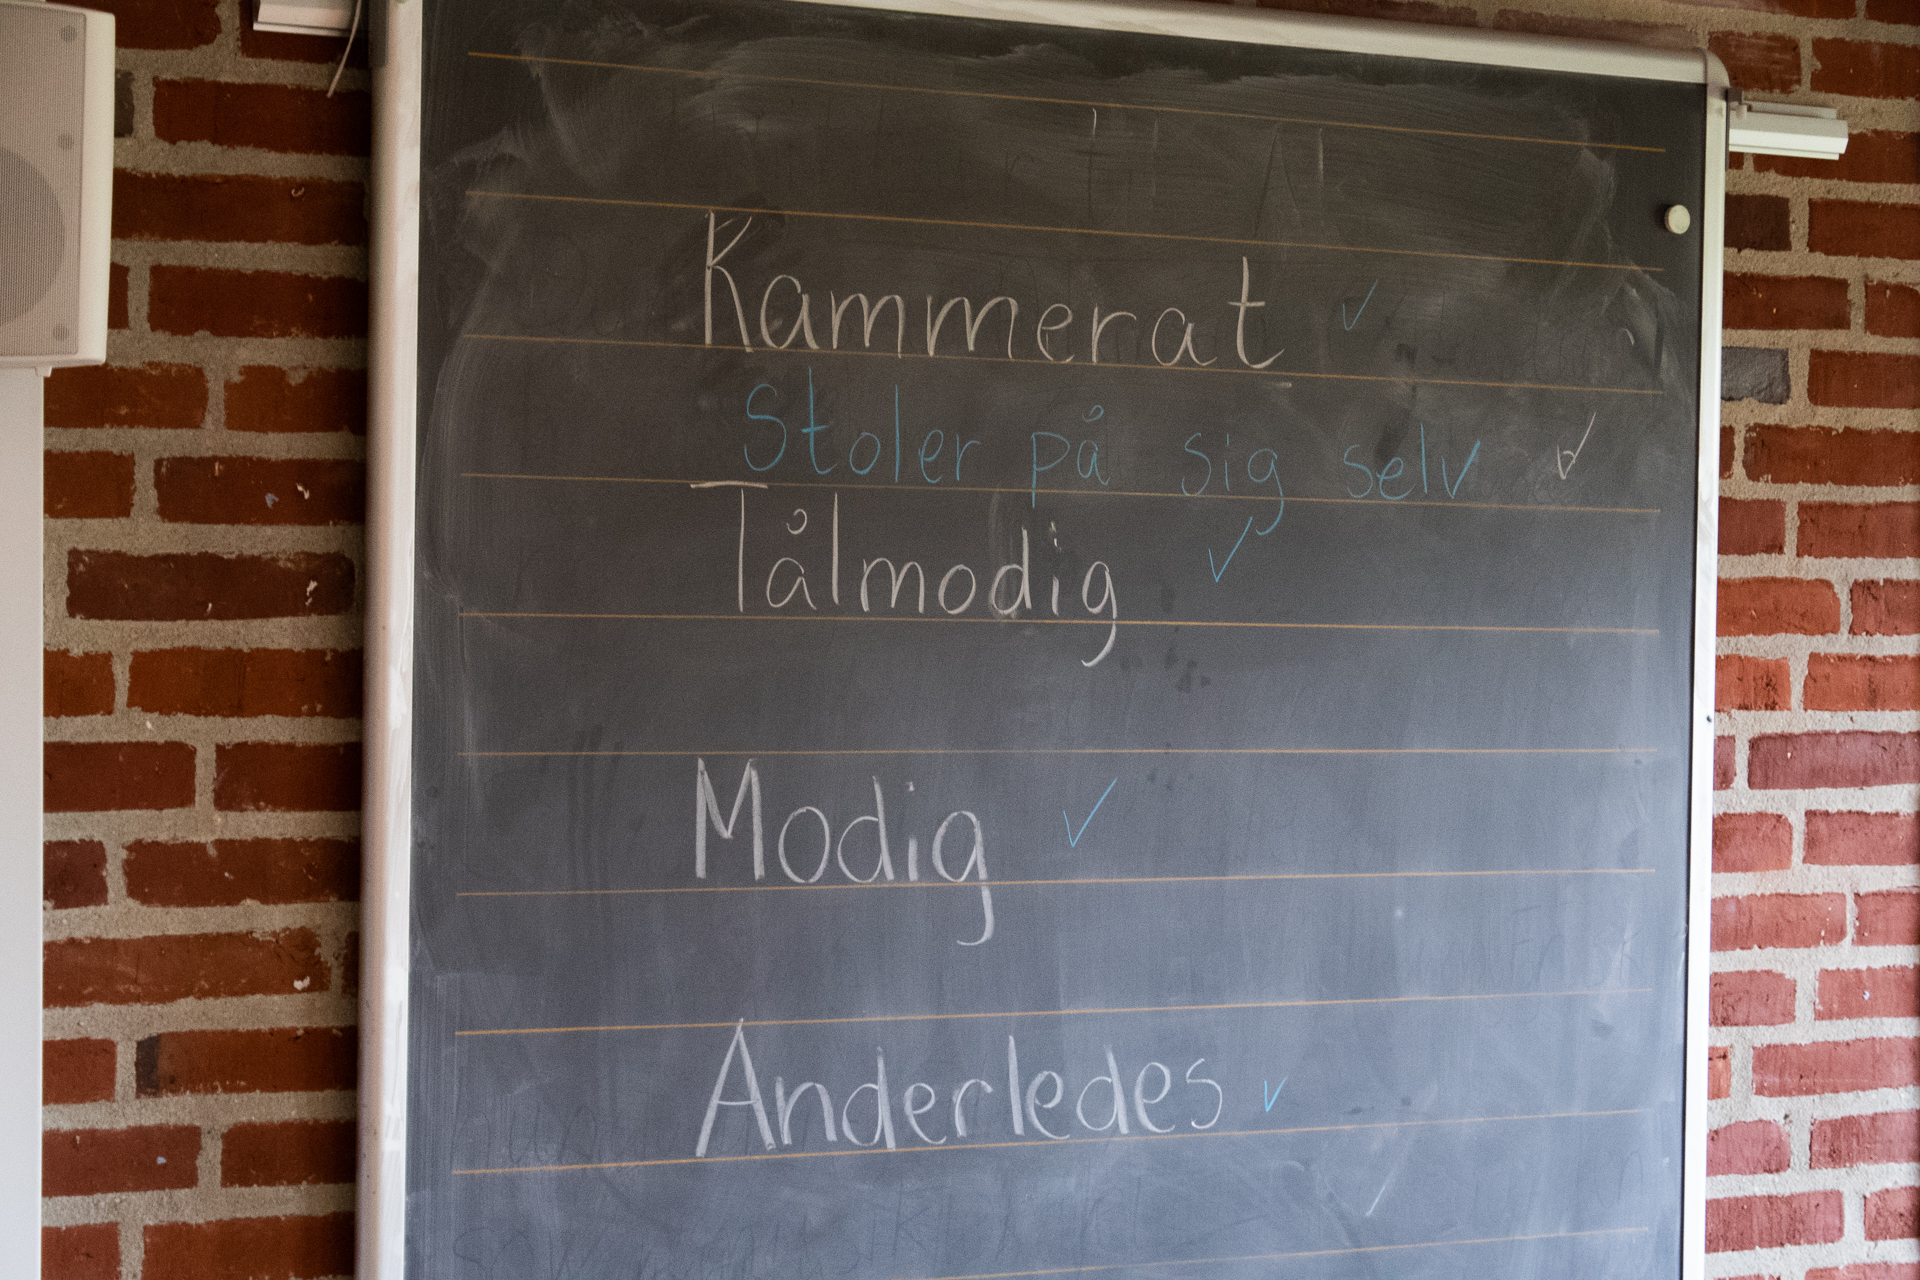 Kammerat ✓
Stoler på sig selv ✓
Tålmodig ✓
Modig ✓
Anderledes ✓